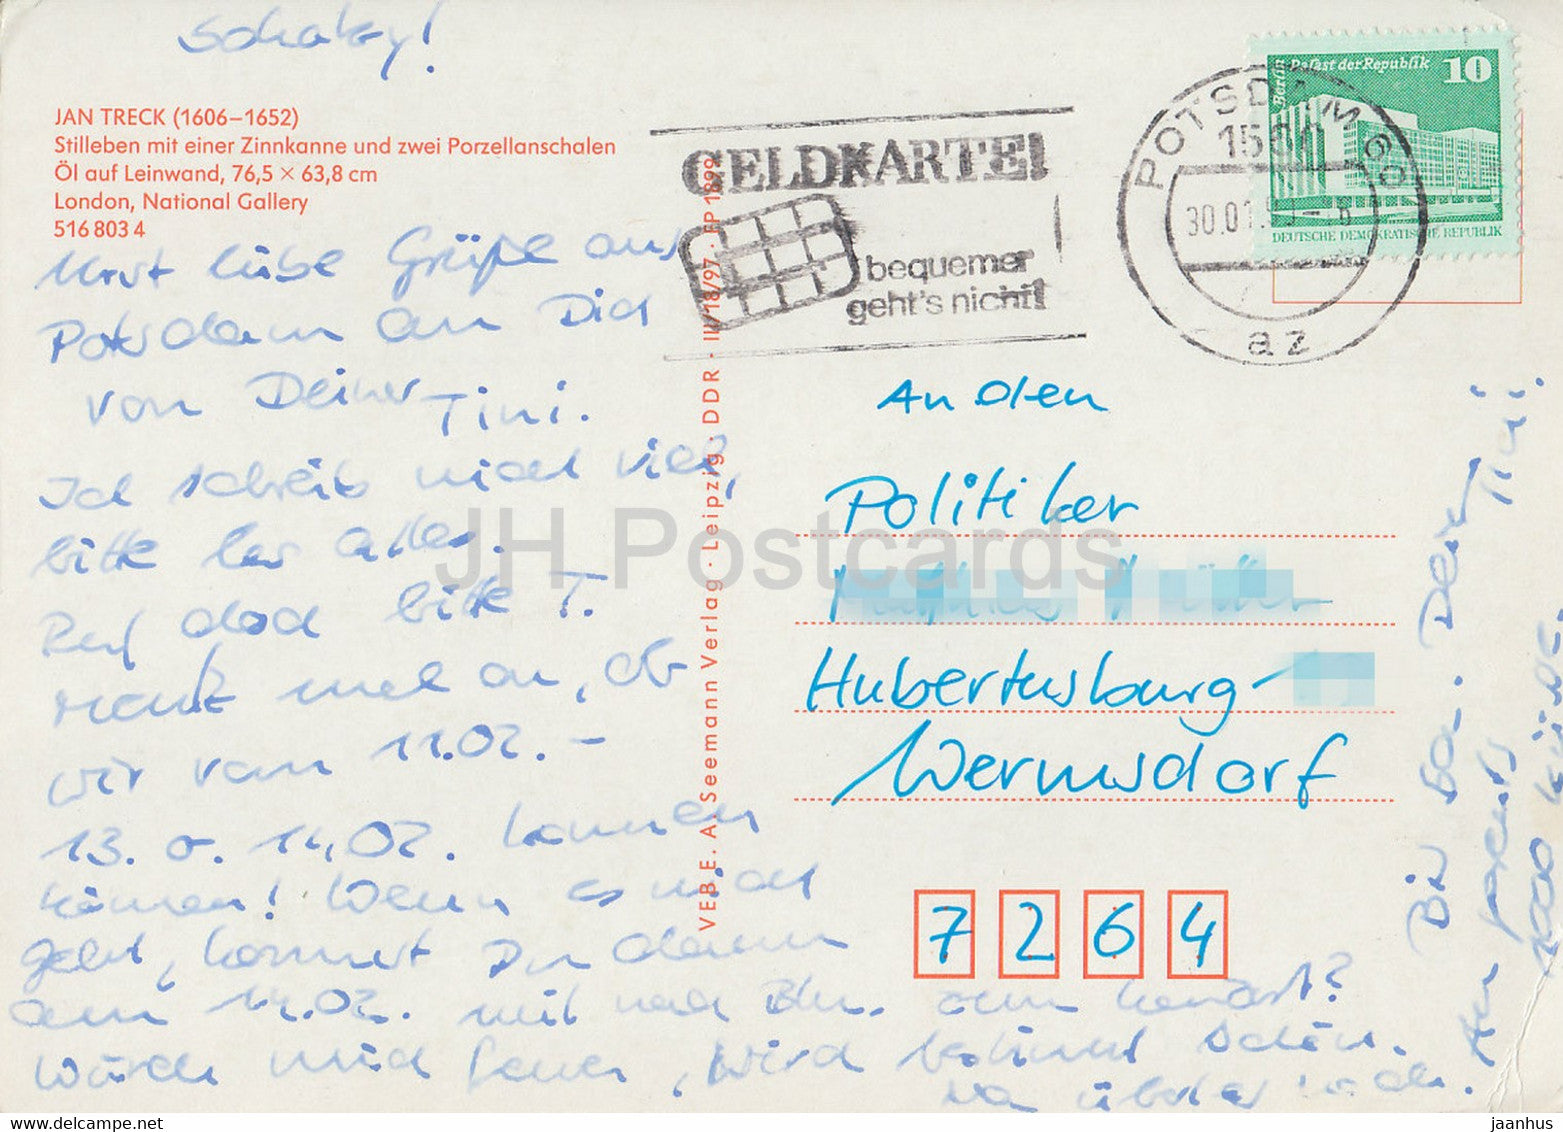 Schatzy!
JAN TRECK (1606–1652)
Stilleben mit einer Zinnkanne und zwei Porzellanschalen
Öl auf Leinwand, 76,5 × 63,8 cm
London, National Gallery
516 803 4
liebe Grüße aus
Potsdam an Dich
von Deiner Tini.
Ich schreib nicht viel,
bitte les alles.
Ruf doch bitte T.
mal an, ob
wir vom 11.02. –
13. o. 14.02. kommen
können! Wenn es nicht
geht, kommst Du dann
am 14.02. mit nach Bln. zum Konzert?
Würde mich freuen, wird bestimmt schön.
Deine Tini!
1000 Küße
VEB E. A. Seemann Verlag · Leipzig · DDR · III/18/97 · EP 1899
GELDKARTE!
bequemer
geht's nicht!
POTSDAM 60
1560
30.01.9
az
Berlin Palast der Republik 10
DEUTSCHE DEMOKRATISCHE REPUBLIK
An den
Politiker
Hubertusburg-
Wermsdorf
7264
JH Postcards
delcampe.net
jaanhus